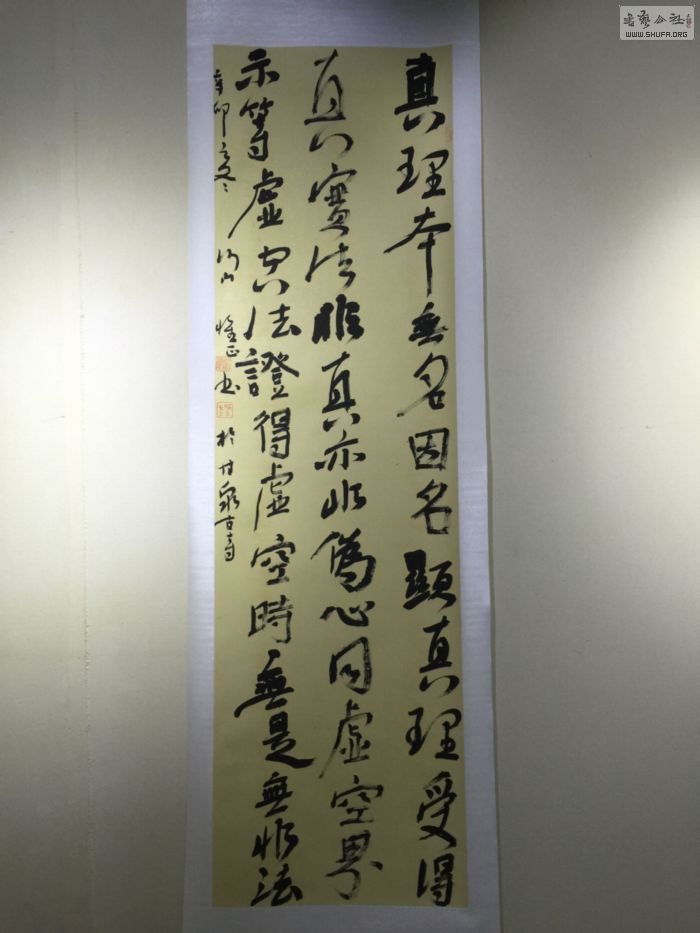 真理本無名因名顯真理受得
真實法非真亦非偽心同虛空界
示等虛空法證得虛空時無是無非法
辛卯之冬 惟正書於甘泉古寺
書藝公社
WWW.SHUFA.ORG